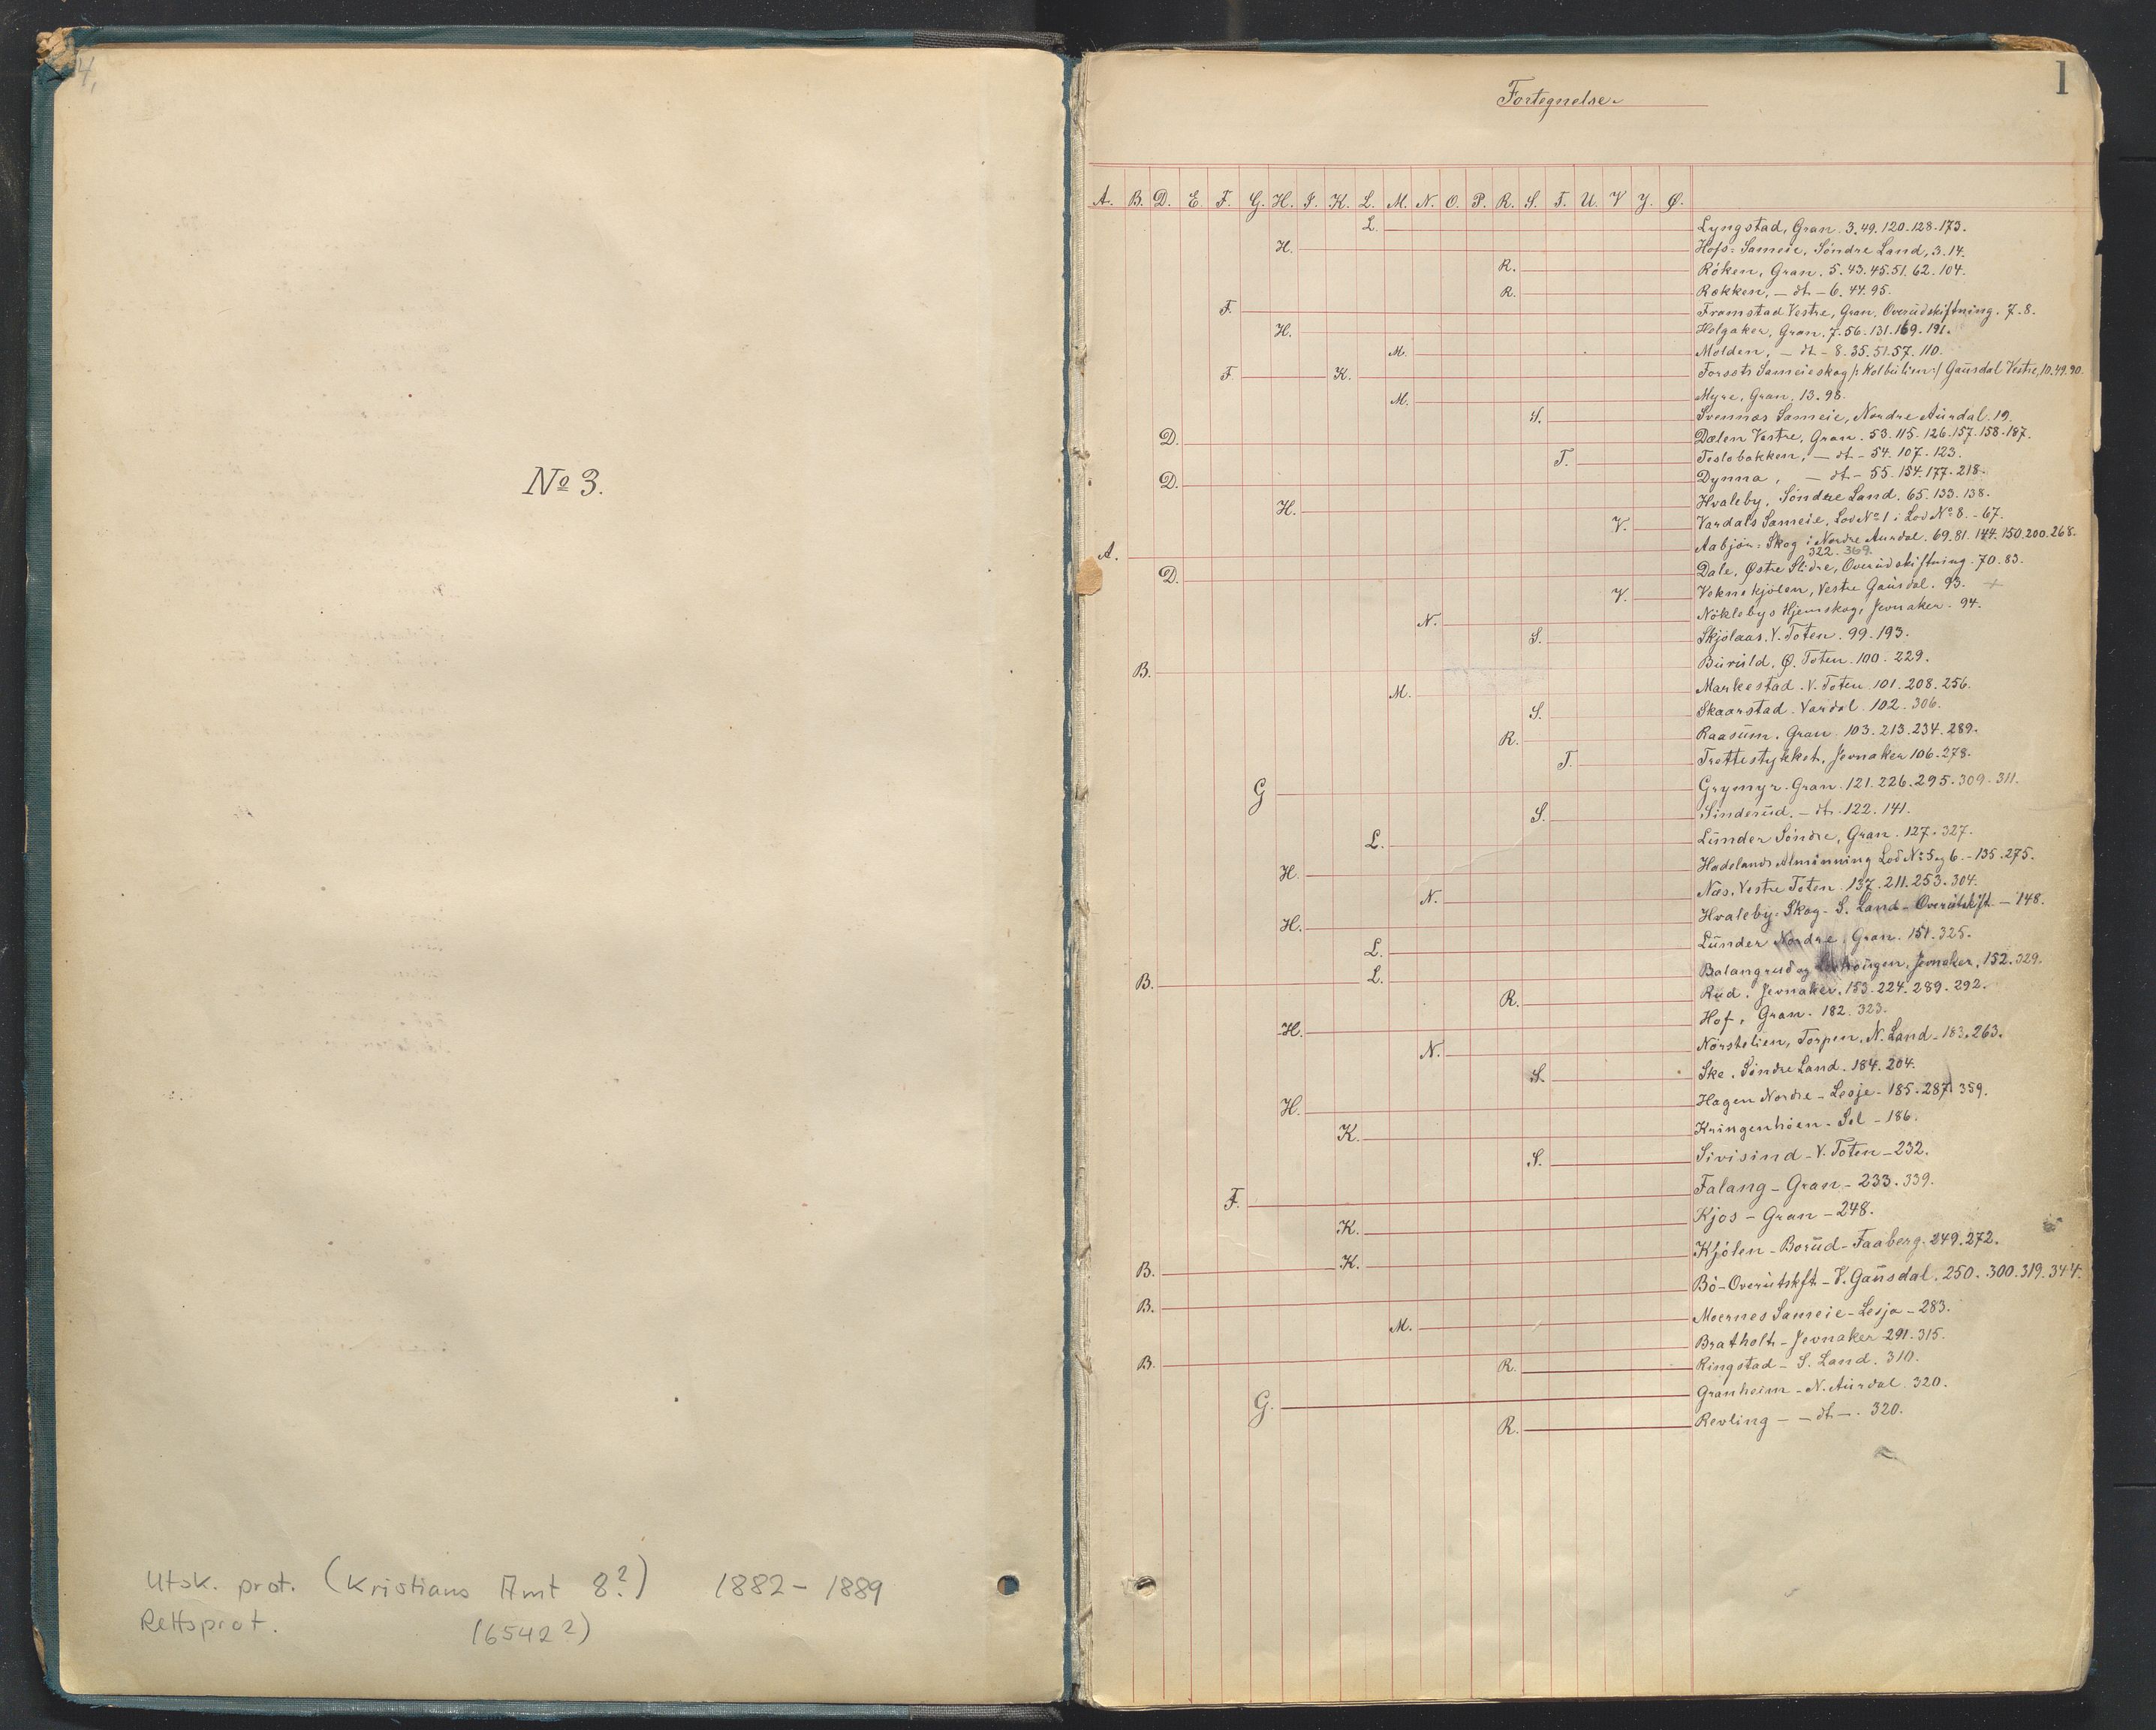 4,
No 3.
Utsk. prot. (Kristians Amt 8?) 1882 - 1889
Rettsprot. (6542 2)
1
Fortegnelse.
A. B. D. E F. G. H. I. K. L. M. N. O. P. R. S. T. U. V Y. Ø.
L. Lyngstad, Gran. 3. 49. 120. 128. 173.
H. Hofs- Sameie, Söndre Land, 3. 14.
R. Röken, Gran. 5. 43. 45. 51. 62. 104.
R. Rækken, - dt - 6. 44. 95.
F. Framstad Vestre, Gran, Overüdskiftning. 7. 8.
H. Helgaker, Gran. 7. 56. 131. 169. 191.
M. Molden, - dt - 8. 35. 51. 57. 110.
F. K. Forsets Sameieskog /: Kolbulien :/ Gaüsdal Vestre, 10. 49. 90.
M. Myre, Gran, 13. 98.
S. Svennæs Sameie, Nordre Aürdal. 19.
D. Dælen Vestre, Gran. 53. 115. 126. 157. 158. 187.
T. Teslebakken, - dt - 54. 107. 123.
D. Dynna, - dt - 55. 154. 177. 218.
H. Hvaleby, Söndre Land. 65. 133. 138.
V. Vardals Sameie, Lod No 1 i Lod No 8. - 67.
A. Aabjör- Skog i Nordre Aurdal. 69. 81. 144. 150. 200. 268.
322. 369.
D. Dale, Østre Slidre, Overüdskiftning. 70. 83.
V. Veknskjölen, Vestre Gaüsdal. 93. +
N. Nöklebys Hjemskog, Jevnaker. 94.
S. Skjölaas. V. Toten. 99. 193.
B. Bürüld. Ø. Toten. 100. 229.
M. Markestad. V. Toten. 101. 208. 256.
S. Skaarstad. Vardal. 102. 306.
R. Raasüm. Gran. 103. 213. 234. 289.
T. Trættestykket, Jevnaker 106. 278.
G Grymyr. Gran. 121. 226. 295. 309. 311.
S. Sinderüd. - dt. 122. 141.
L. Lünder Söndre, Gran. 127. 327.
H. Hadelands Almänning Lod No 5 og 6. - 135. 275.
N. Næs. Vestre Toten. 137. 211. 253. 304.
H. Hvaleby- Skog - S. Land - Overütskift. - 148.
L. Lünder Nordre. Gran. 151. 325.
B. L. Balangrud og Jevnaker, 152. 329.
R. Rüd. Jevnaker. 153. 224. 289. 292.
H. Hof, Gran. 182. 323.
N. Nörstelien, Torpen, N. Land - 183. 263.
S. Ske. Söndre Land. 184. 204.
H. Hagen Nordre - Lesje - 185. 287. 359.
K. Kringenhöen - Sel - 186.
S. Sivisind - V. Toten - 232.
F. Falang - Gran - 233. 339.
K. Kjos - Gran - 248.
B. K. Kjölen - Borüd - Faaberg. 249. 272.
B. Bö - Overütskft. - V. Gaüsdal. 250. 300. 319. 344.
M. Moernes Sameie - Lesja - 283.
B. Bratholt - Jevnaker 291. 315.
R. Ringstad - S. Land. 310.
G. Granheim - N. Aürdal. 320.
R. Revling - - dt -. 320.